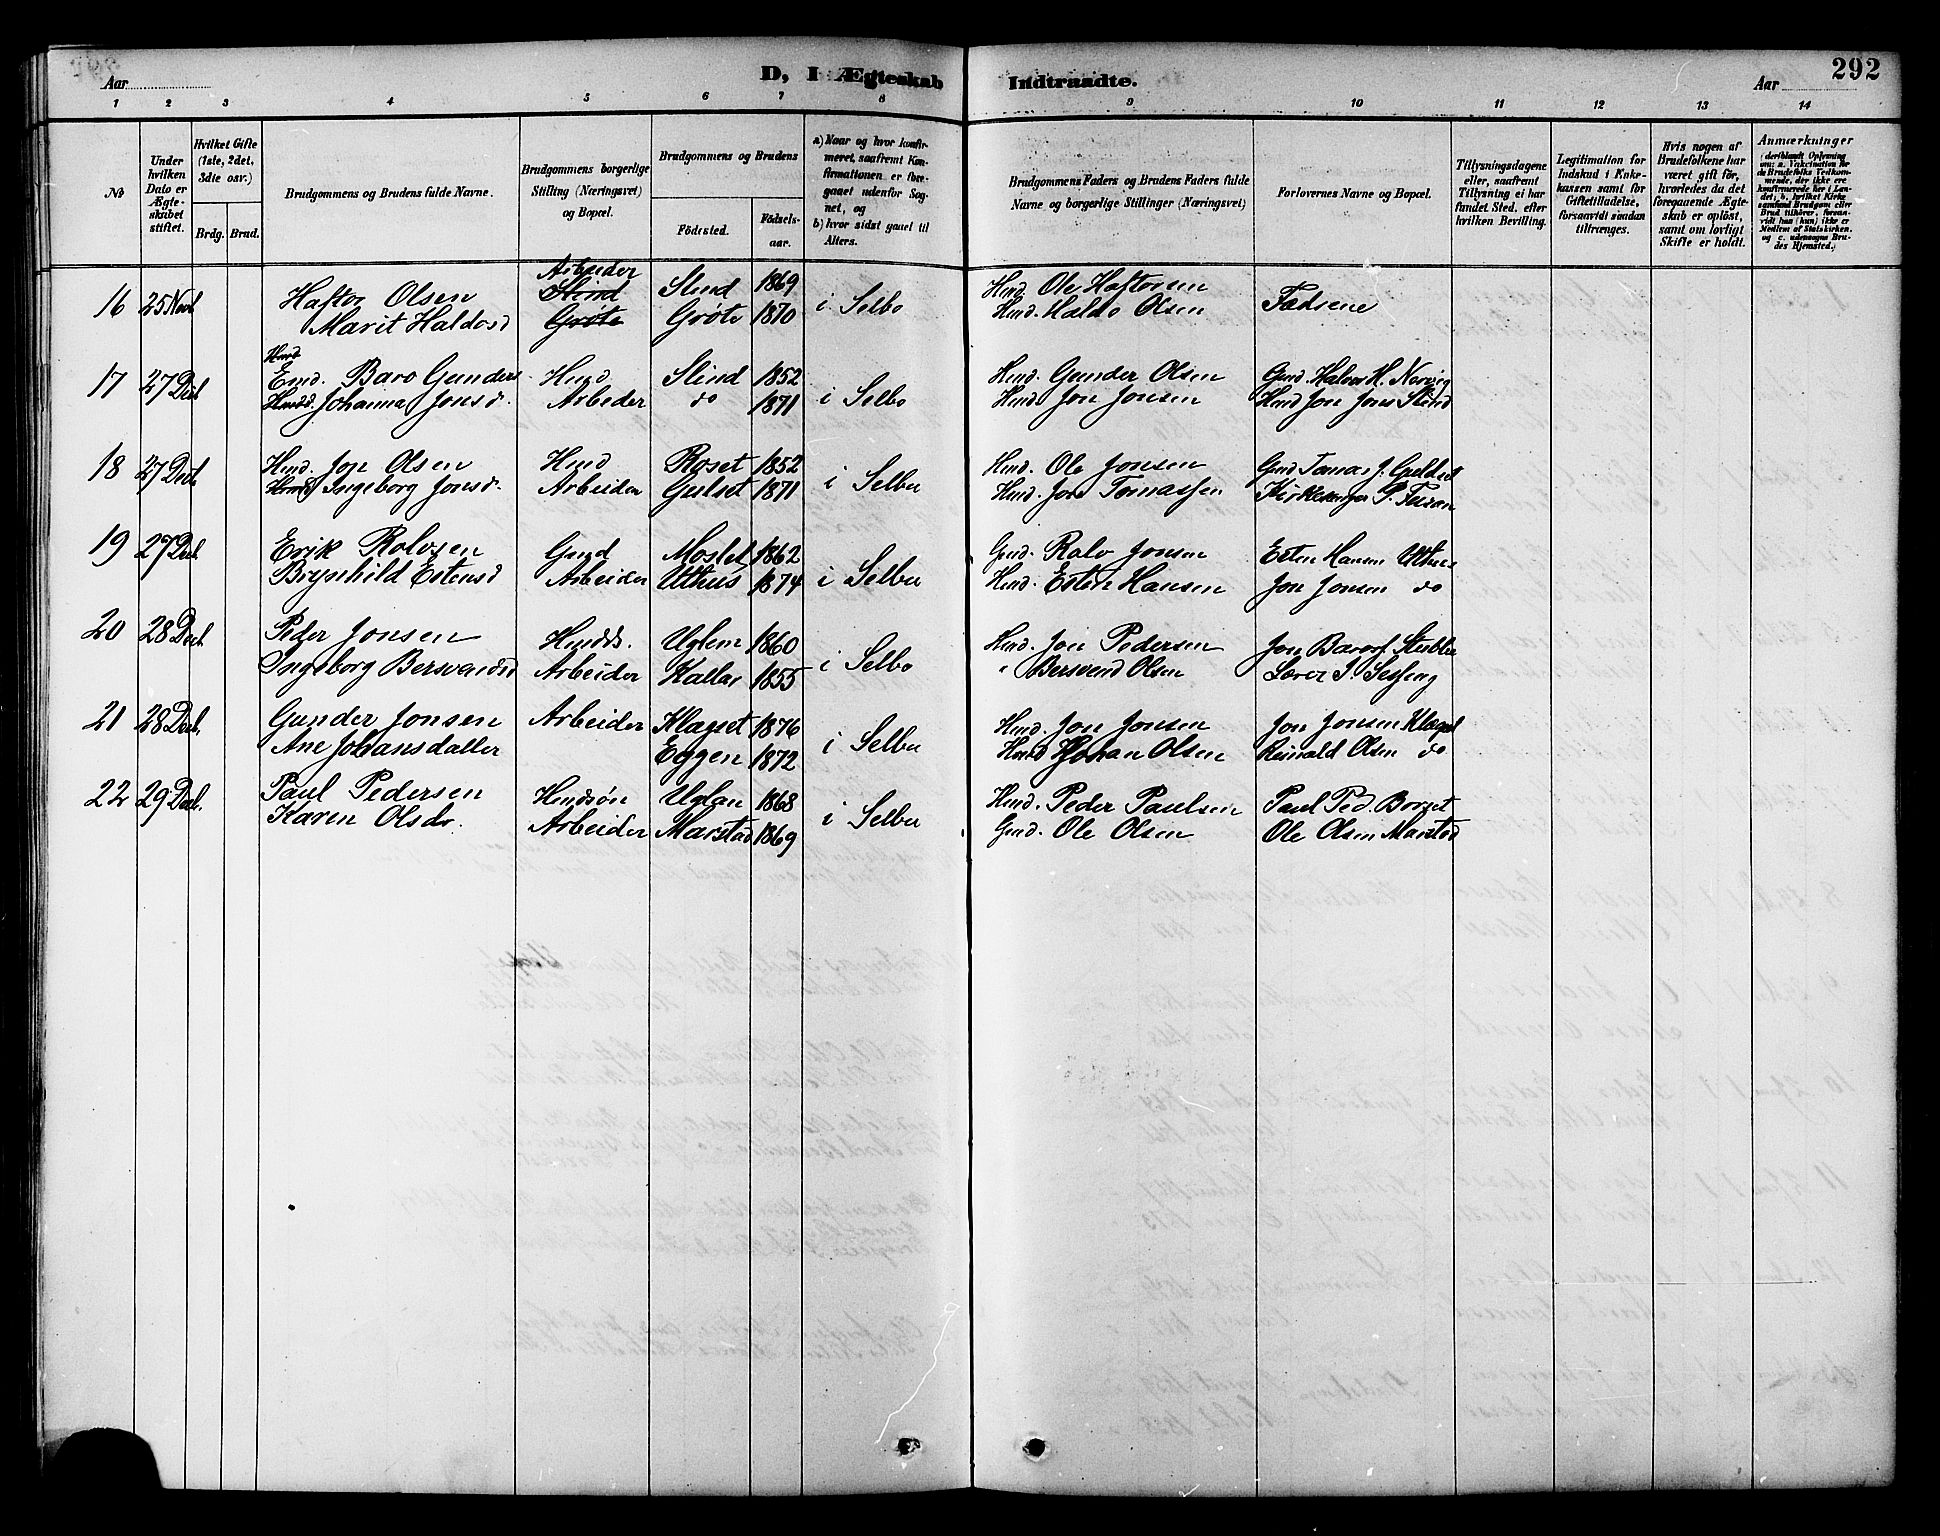 292
Aar
D, I Ægteskab Indtraadte.
Aar
1 2 3 4 5 6 7 8 9 10 11 12 13 14
No
Under hvilken Dato er Ægteskabet stiftet.
Hvilket Gifte (1ste, 2det, 3die osv.)
Brdg. Brud.
Brudgommens og Brudens fulde Navne.
Brudgommens borgerlige Stilling (Næringsvei) og Bopæl.
Brudgommens og Brudens
Fødested.
Fødselsaar.
a) Naar og hvor konfirmeret, saafremt Konfirmationen er foregaaet udenfor Sognet, og
b) hvor sidst gaaet til Alters.
Brudgommens Faders og Brudens Faders fulde Navne og borgerlige Stillinger (Næringsvei)
Forlovernes Navne og Bopæl.
Tillysningsdagene eller, saafremt Tillysning ei har fundet Sted, efter hvilken Bevilling.
Legitimation for Indskud i Enkekassen samt for Giftetilladelse, forsaavidt saadan tiltrænges.
Hvis nogen af Brudefolkene har været gift før, hvorledes da det foregaaende Ægteskab er opløst, samt om lovligt Skifte er holdt.
Anmærkninger
16 25 Novb Haftor Olsen Arbeider Slind Slind 1869 i Selbo Hmd. Ole Haftorsen Fædrene
Marit Haldosd Grøte Grøte 1870 Hmd. Haldo Olsen
17 27 Dec Emd. Baro Gunders Hmd Slind 1852 i Selbo Hmd. Gunder Olsen Gmd. Halvor H. Norvig
Johanna Jonsd. Arbeder do 1871 Hmd. Jon Jonsen Hmd Jon Jons Slind
18 27 Decb Hmd. Jon Olsen Hmd Roset 1852 i Selbu Hmd. Ole Jonsen Gmd Tomas J. Guldset
Ingeborg Jonsd. Arbeider Gulset 1871 Hmd. Jon Tomassen Kirkesanger P. Fuxan
19 27 Decb Erik Rolvsen Gmd Moslet 1862 i Selbu Gmd. Rolv Jonsen Esten Hansen Uthus
Brynhild Estensd Arbeider Uthus 1874 Hmd. Esten Hansen Jon Jonsen do
20 28 Decb. Peder Jonsen Hmdds. Uglem 1860 i Selbo Hmd. Jon Pedersen Jon Barosl Stubbe
Ingeborg Bersvendsd Arbeider Kallar 1855 " Bersvend Olsen Lærer J. Sesseng
21 28 Decb. Gunder Jonsen Arbeider Klagset 1876 i Selbu Hmd. Jon Jonsen Jon Jonsen Klægset
Ane Johansdatter Eggen 1872 Hmd Johan Olsen Reinald Olsen do
22 29 Decb. Paul Pedersen Hmdsøn Uglan 1868 i Selbu Hmd. Peder Paulsen Paul Ped. Borset
Karen Olsdr. Arbeider Marstad 1869 Gmd. Ole Olsen Ole Olsen Marstad